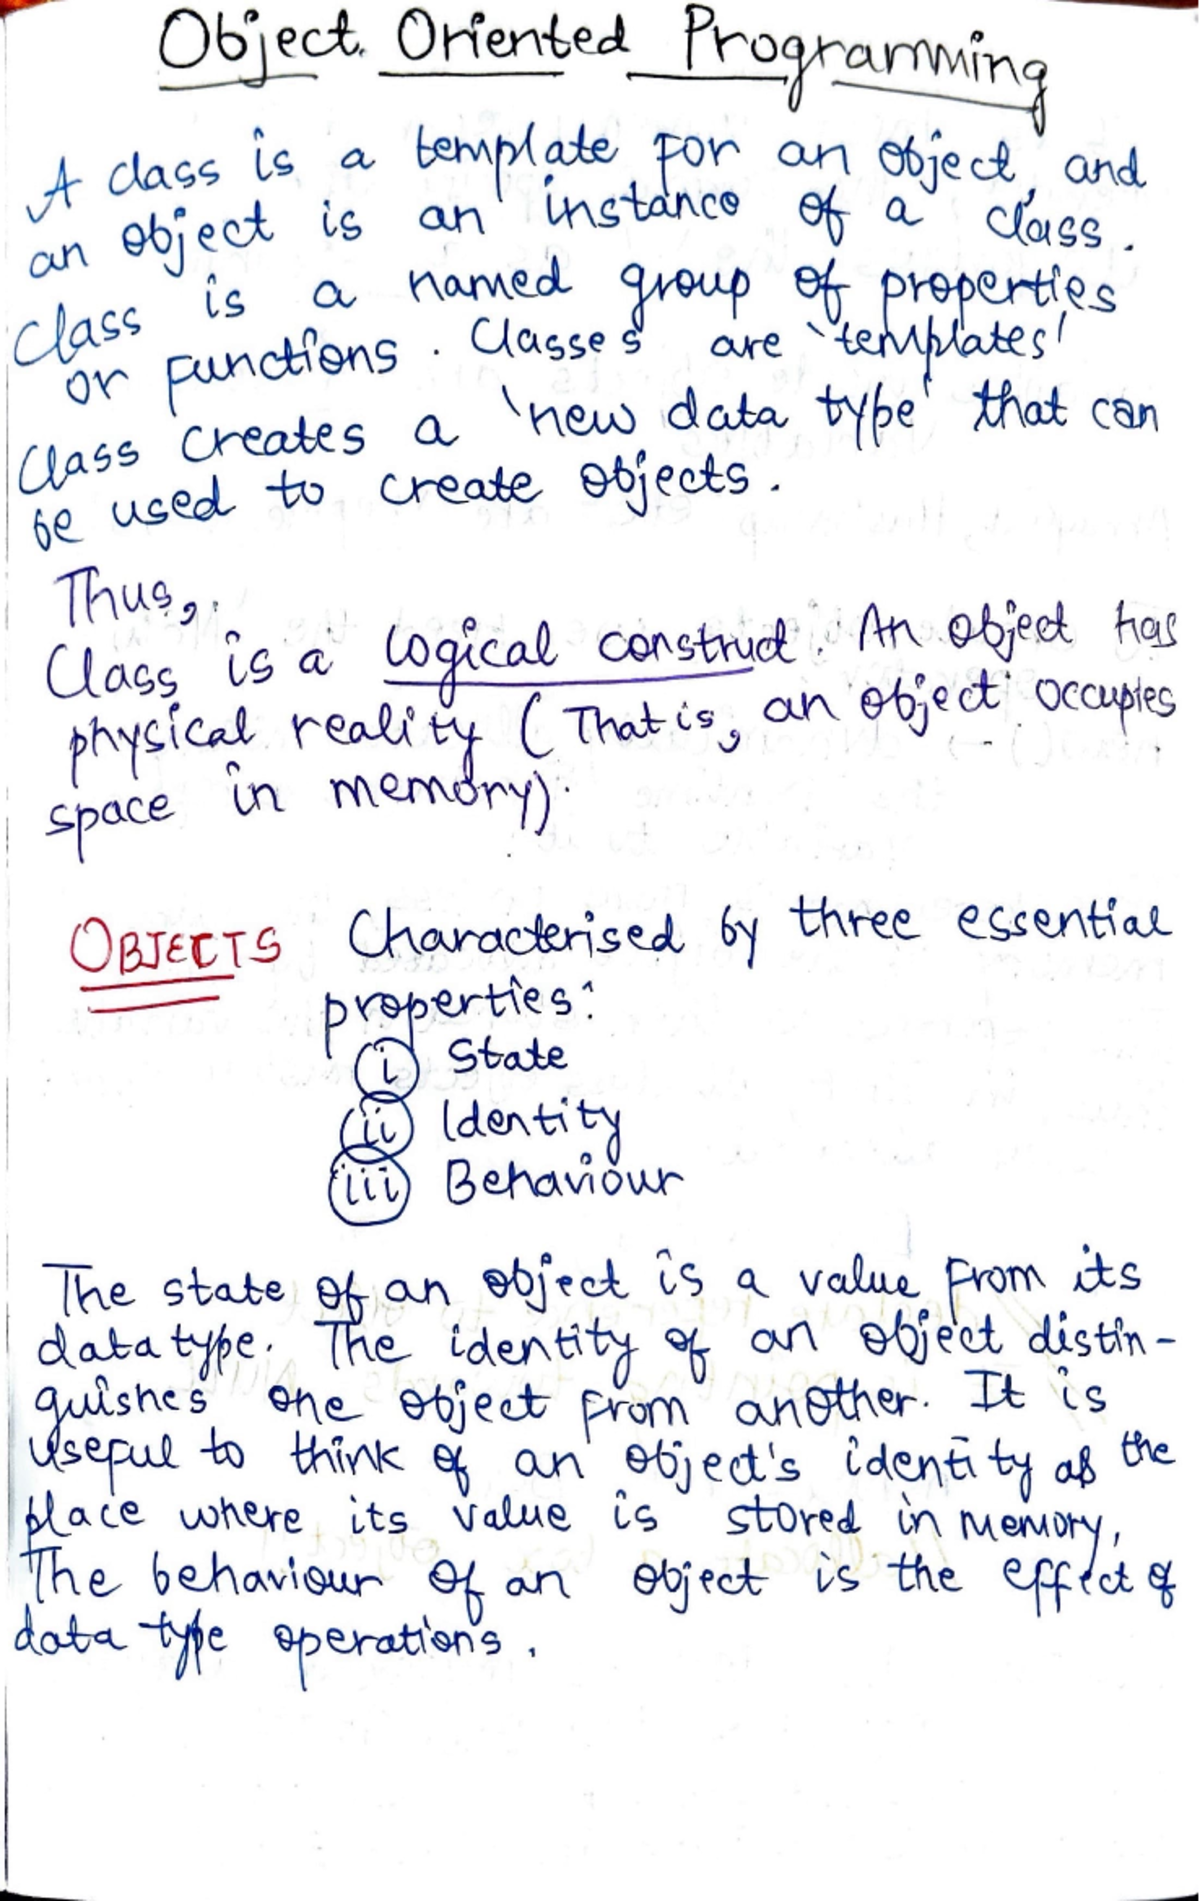 Object Oriented Programming
A class is a template for an object, and
an object is an instance of a class.
Class is a named group of properties
or functions. Classes are 'templates'
Class creates a 'new data type' that can
be used to create objects.
Thus,
Class is a logical construct. An object has
physical reality (That is, an object occupies
space in memory).
OBJECTS Characterised by three essential
properties:
(i) State
(ii) Identity
(iii) Behaviour
The state of an object is a value from its
data type. The identity of an object distin-
guishes one object from another. It is
useful to think of an object's identity as the
place where its value is stored in memory,
The behaviour of an object is the effect of
data type operations.